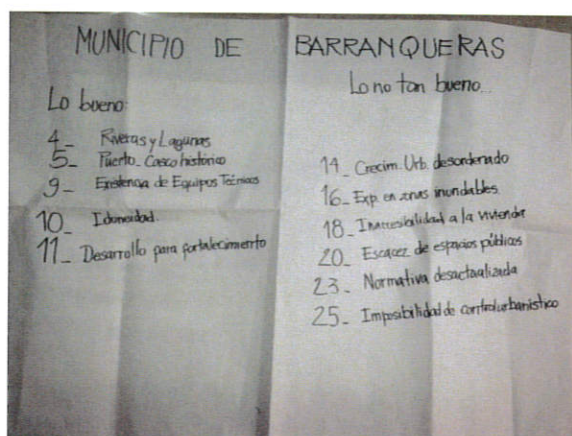 MUNICIPIO DE BARRANQUERAS
Lo bueno:
4_ Riveras y Lagunas
5_ Puerto_ Casco histórico
9_ Existencia de Equipos Técnicos
10_ Idoneidad.
11_ Desarrollo para fortalecimiento
Lo no tan bueno...
14_ Crecim. Urb. desordenado
16_ Exp. en zonas inundables
18_ Inaccesibilidad a la vivienda
20_ Escacez de espacios públicos
23_ Normativa desactualizada
25_ Imposibilidad de control urbanístico